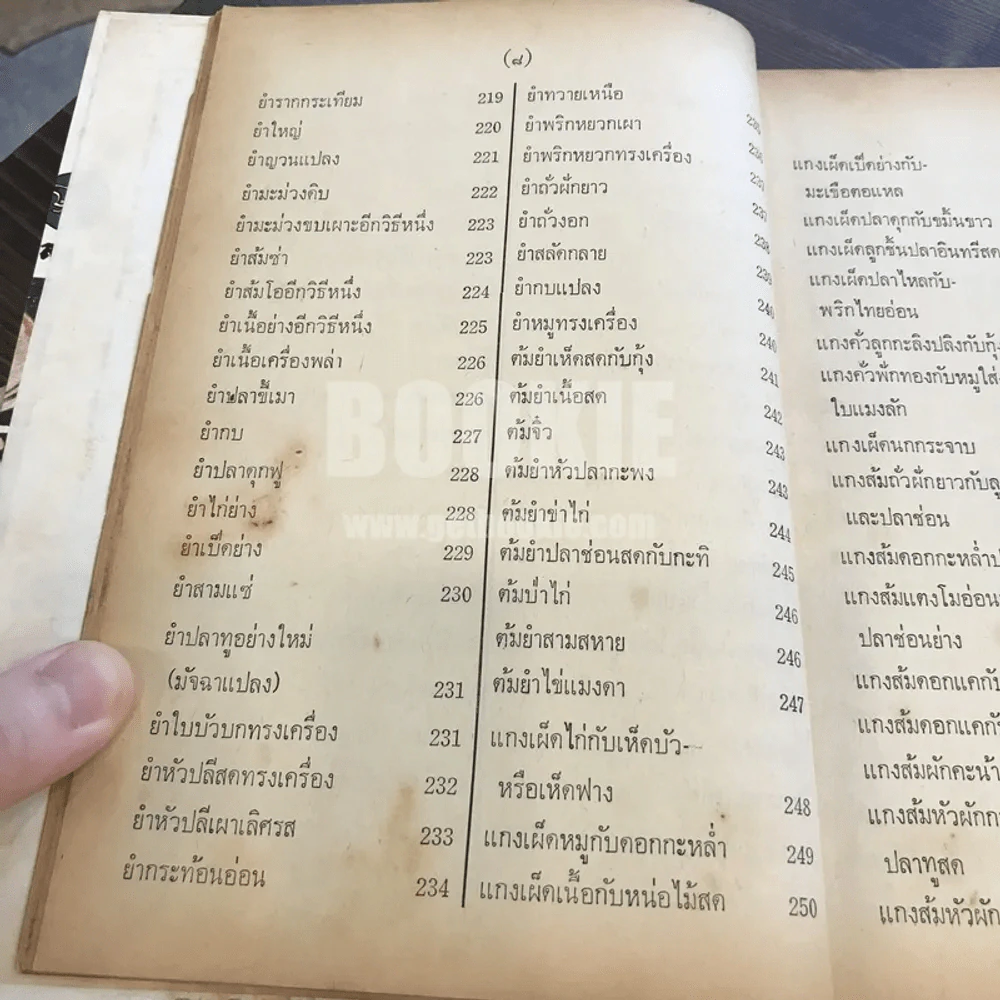 (๘)
ยำรากกระเทียม 219
ยำใหญ่ 220
ยำญวนแปลง 221
ยำมะม่วงดิบ 222
ยำมะม่วงขบเผาะอีกวิธีหนึ่ง 223
ยำส้มซ่า 223
ยำส้มโออีกวิธีหนึ่ง 224
ยำเนื้อย่างอีกวิธีหนึ่ง 225
ยำเนื้อเครื่องพล่า 226
ยำปลาขี้เมา 226
ยำกบ 227
ยำปลาดุกฟู 228
ยำไก่ย่าง 228
ยำเป็ดย่าง 229
ยำสามแซ่ 230
ยำปลาทูอย่างใหม่
(มัจฉาแปลง) 231
ยำใบบัวบกทรงเครื่อง 231
ยำหัวปลีสดทรงเครื่อง 232
ยำหัวปลีเผาเลิศรส 233
ยำกระท้อนอ่อน 234
ยำทวายเหนือ 235
ยำพริกหยวกเผา 236
ยำพริกหยวกทรงเครื่อง 237
ยำถั่วฝักยาว 237
ยำถั่วงอก 238
ยำสลัดกลาย 239
ยำกบแปลง 240
ยำหมูทรงเครื่อง 240
ต้มยำเห็ดสดกับกุ้ง 241
ต้มยำเนื้อสด 242
ต้มจิ๋ว 243
ต้มยำหัวปลากะพง 243
ต้มยำข่าไก่ 244
ต้มยำปลาช่อนสดกับกะทิ 245
ต้มป่าไก่ 246
ต้มยำสามสหาย 246
ต้มยำไข่แมงดา 247
แกงเผ็ดไก่กับเห็ดบัว-
หรือเห็ดฟาง 248
แกงเผ็ดหมูกับดอกกะหล่ำ 249
แกงเผ็ดเนื้อกับหน่อไม้สด 250
แกงเผ็ดเป็ดย่างกับ-
มะเขือคอแหล
แกงเผ็ดปลาดุกกับขมิ้นขาว
แกงเผ็ดลูกชิ้นปลาอินทรีสด
แกงเผ็ดปลาไหลกับ-
พริกไทยอ่อน
แกงคั่วลูกตะลิงปลิงกับกุ้ง
แกงคั่วฟักทองกับหมูใส่
ใบแมงลัก
แกงเผ็ดนกกระจาบ
แกงส้มถั่วฝักยาวกับ
และปลาช่อน
แกงส้มดอกกะหล่ำ
แกงส้มแตงโมอ่อน
ปลาช่อนย่าง
แกงส้มดอกแคกับ
แกงส้มดอกแคกับ
แกงส้มผักคะน้า
แกงส้มหัวผักก
ปลาทูสด
แกงส้มหัวผัก
BOOKIE